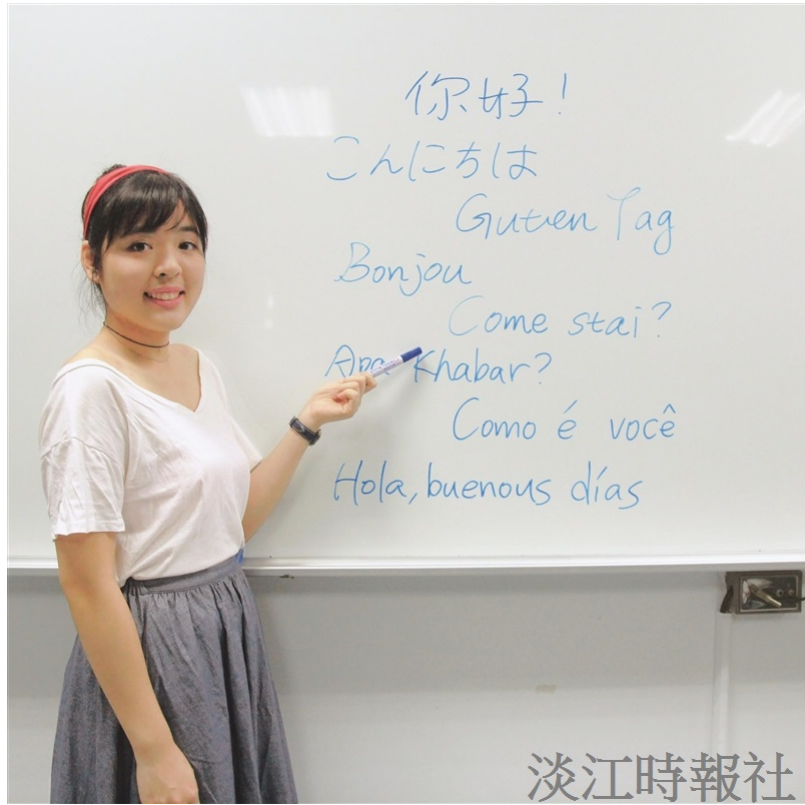 你好！
こんにちは
Guten Tag
Bonjou
Come stai?
Apa Khabar?
Como é você
Hola, buenous días
淡江時報社